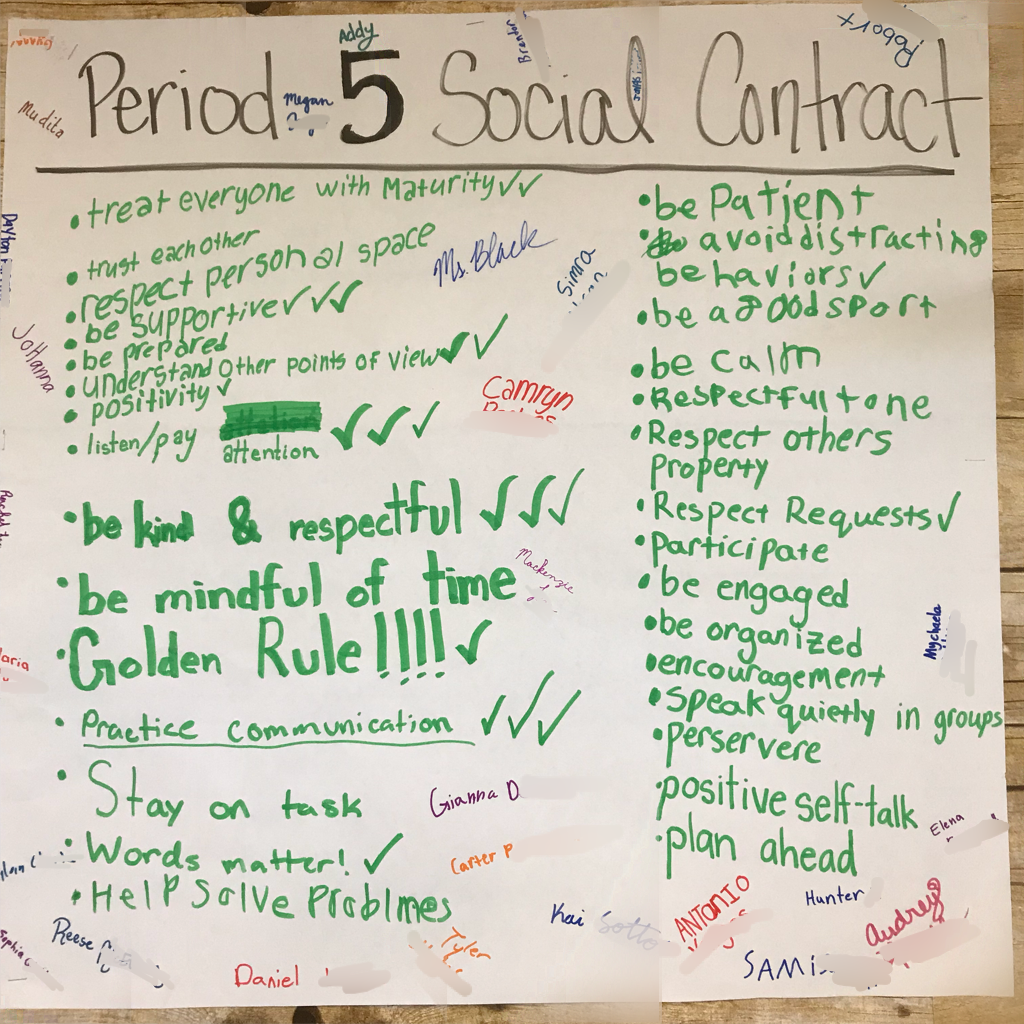 Period 5 Social Contract
Addy
Megan
Robert
Mudita
• treat everyone with Maturity ✓✓
• trust each other
• respect personal space
• be supportive ✓✓✓
• be prepared
• understand other points of view ✓✓
• positivity ✓
• listen/pay attention ✓✓✓
• be kind & respectful ✓✓✓
• be mindful of time
• Golden Rule!!!! ✓
• Practice communication ✓✓✓
• Stay on task
• Words matter! ✓
• Help Solve Problmes
Ms. Black
Simra
Johanna
Camryn
Mackenzie
Gianna D
Carter P
• be Patient
• avoid distracting
behaviors ✓
• be a good sport
• be calm
• Respectful tone
• Respect others
property
• Respect Requests ✓
• participate
• be engaged
• be organized
• encouragement
• speak quietly in groups
• perservere
• positive self-talk
• plan ahead
Mychaela
Elena
Reese
Daniel
Tyler
Kai Sotto
ANTONIO
Hunter
Audrey
SAMi